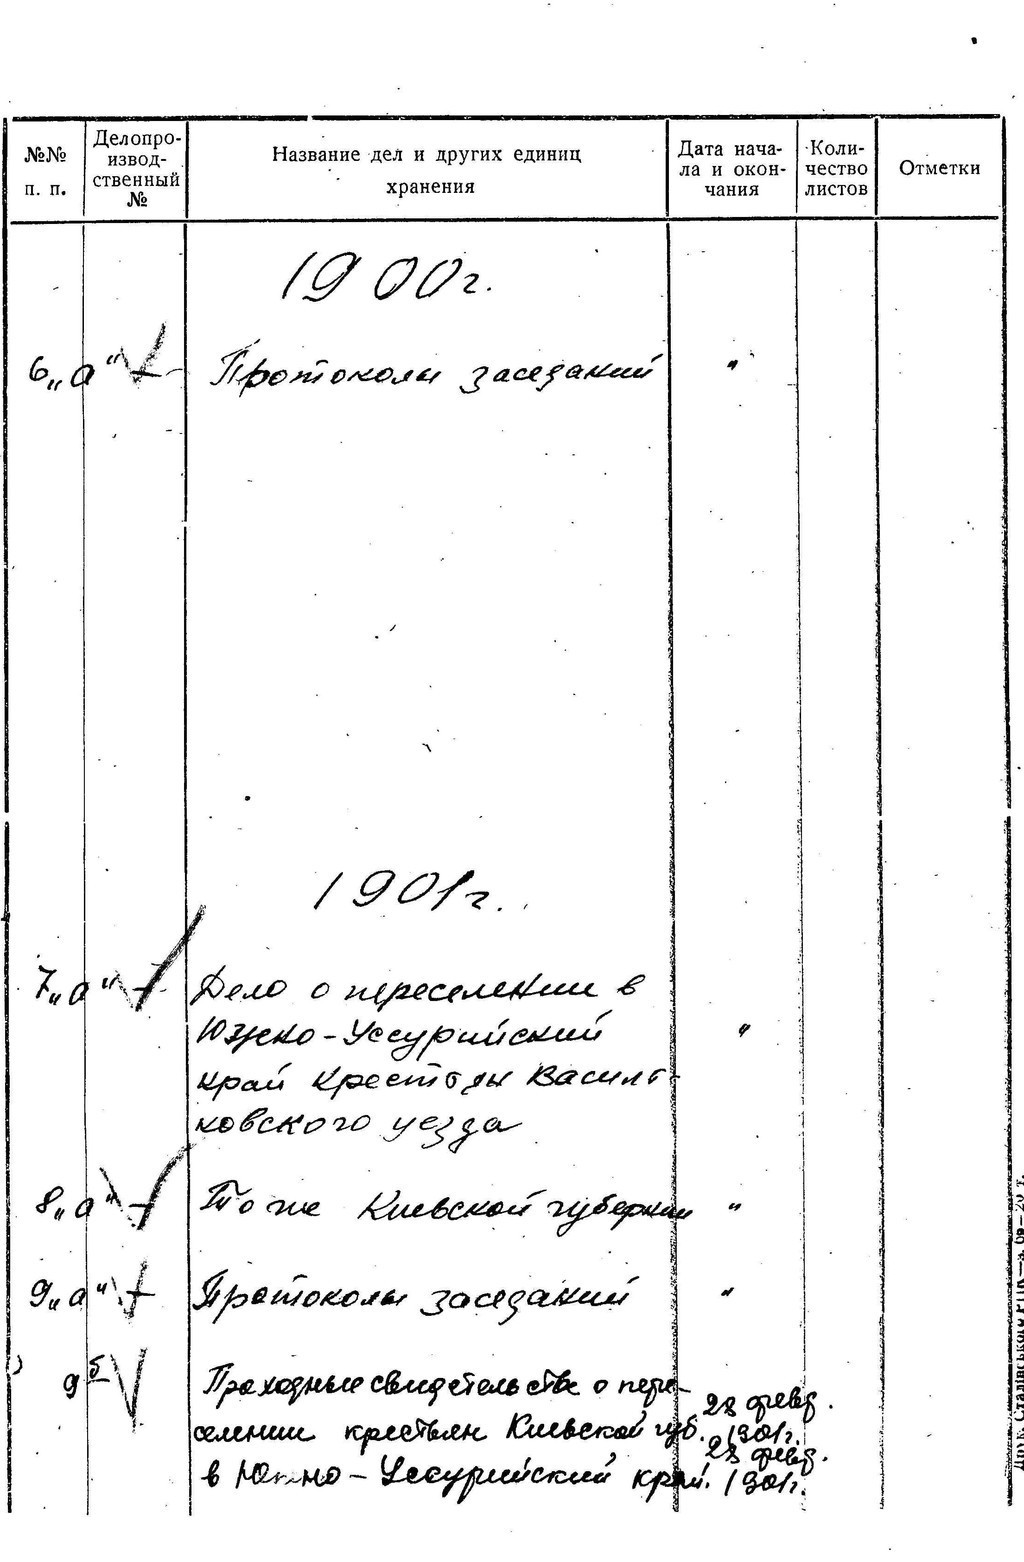 №№ п. п.
Делопроизводственный №
Название дел и других единиц хранения
Дата начала и окончания
Количество листов
Отметки
1900г.
6„а“ Протоколы заседаний "
1901г.
7„а“ Дело о переселении в
Южно-Уссурийский "
край крестьян Василь-
ковского уезда
8„а“ То же Киевской губернии "
9„а“ Протоколы заседаний "
9б Проходные свидетельства о пере-
28 февр.
селении крестьян Киевской губ. 1901г.
28 февр.
в Южно-Уссурийский край. 1901г.